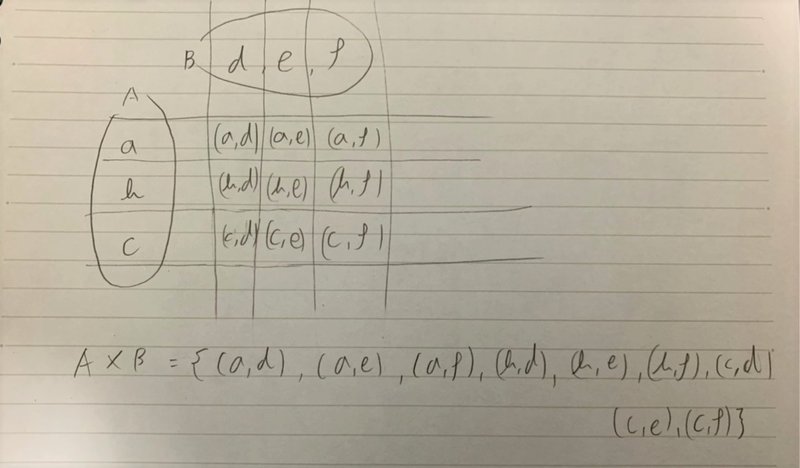 B d, e, f
A
a (a,d) (a,e) (a,f)
h (h,d) (h,e) (h,f)
c (c,d) (c,e) (c,f)
A × B = {(a,d), (a,e), (a,f), (h,d), (h,e), (h,f), (c,d)
(c,e), (c,f)}